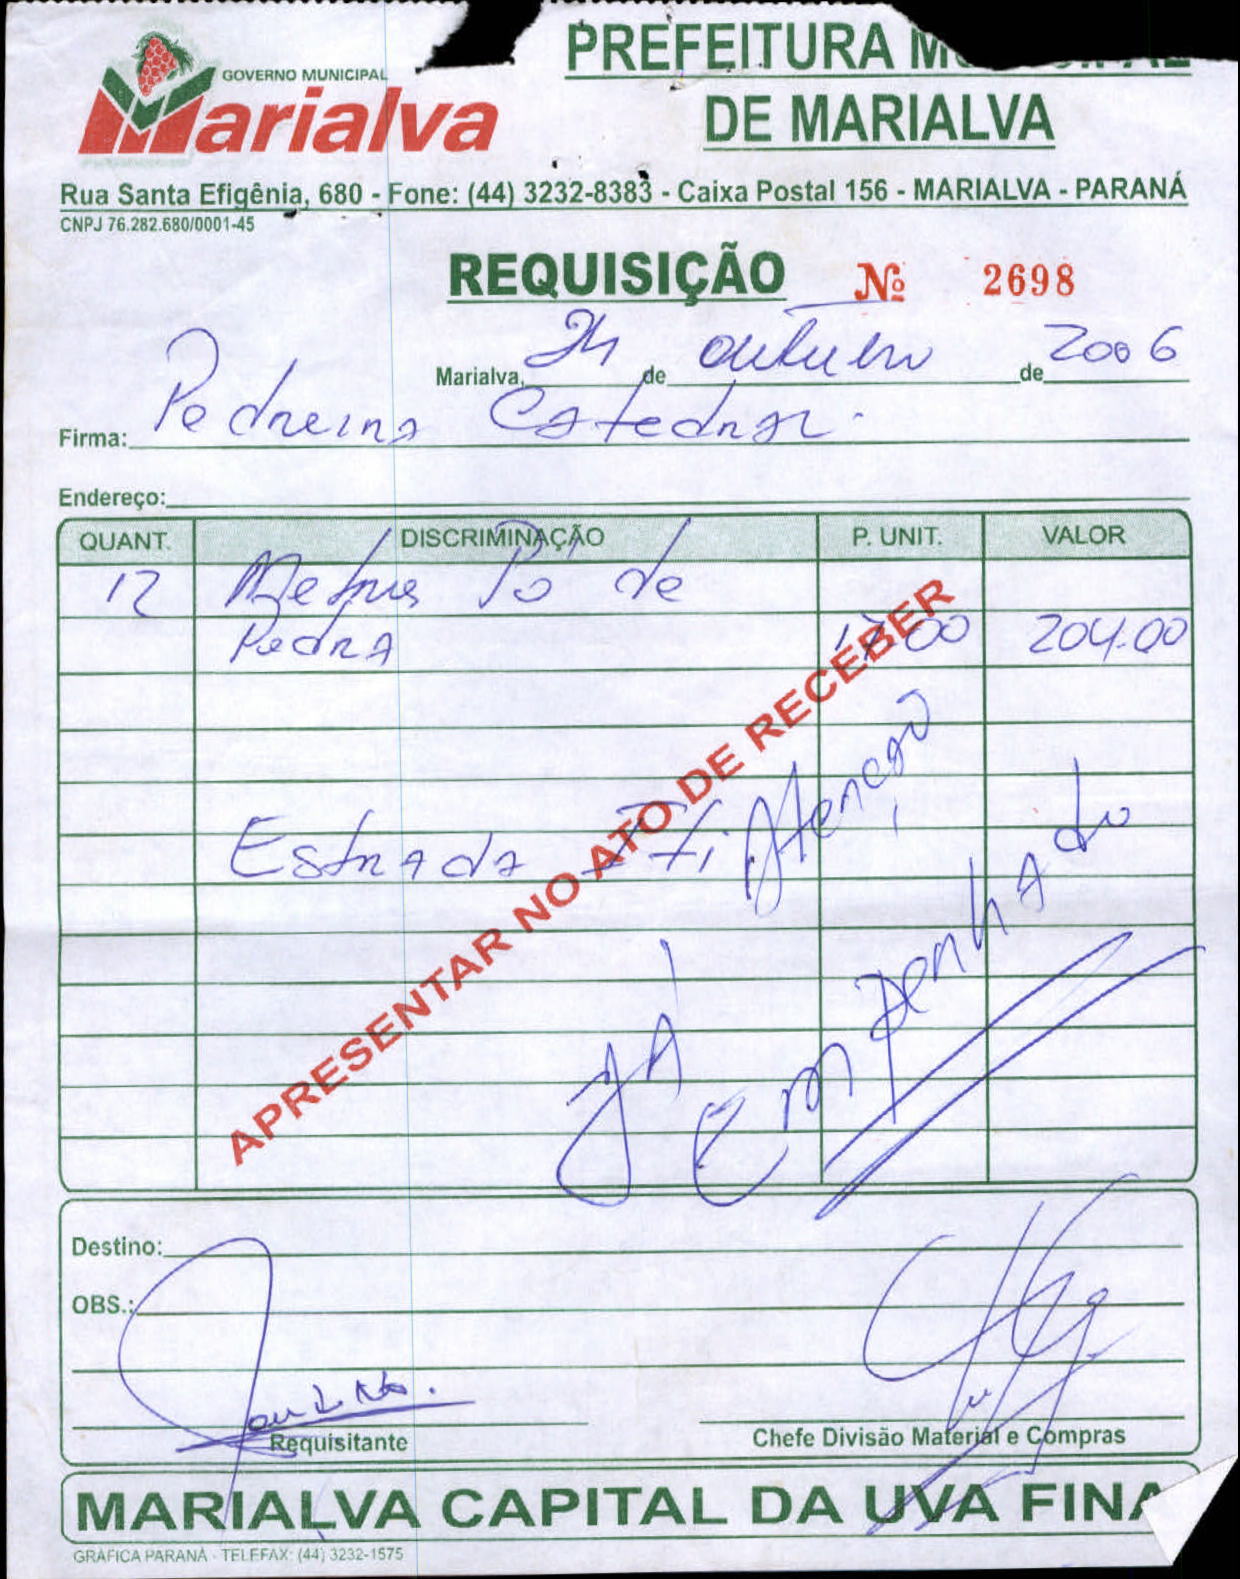 GOVERNO MUNICIPAL
Marialva
PREFEITURA MUNICIPAL
DE MARIALVA
Rua Santa Efigênia, 680 - Fone: (44) 3232-8383 - Caixa Postal 156 - MARIALVA - PARANÁ
CNPJ 76.282.680/0001-45
REQUISIÇÃO Nº 2698
Marialva, 24 de outubro de 2006
Firma: Pedreira Catedral.
Endereço:
QUANT. DISCRIMINAÇÃO P. UNIT. VALOR
12 Metros Pó de
Pedra 17.00 204.00
APRESENTAR NO ATO DE RECEBER
Estrada
Atenção
JÁ Empenhado
Destino:
OBS.:
Requisitante Chefe Divisão Material e Compras
MARIALVA CAPITAL DA UVA FINA
GRÁFICA PARANÁ - TELEFAX: (44) 3232-1575